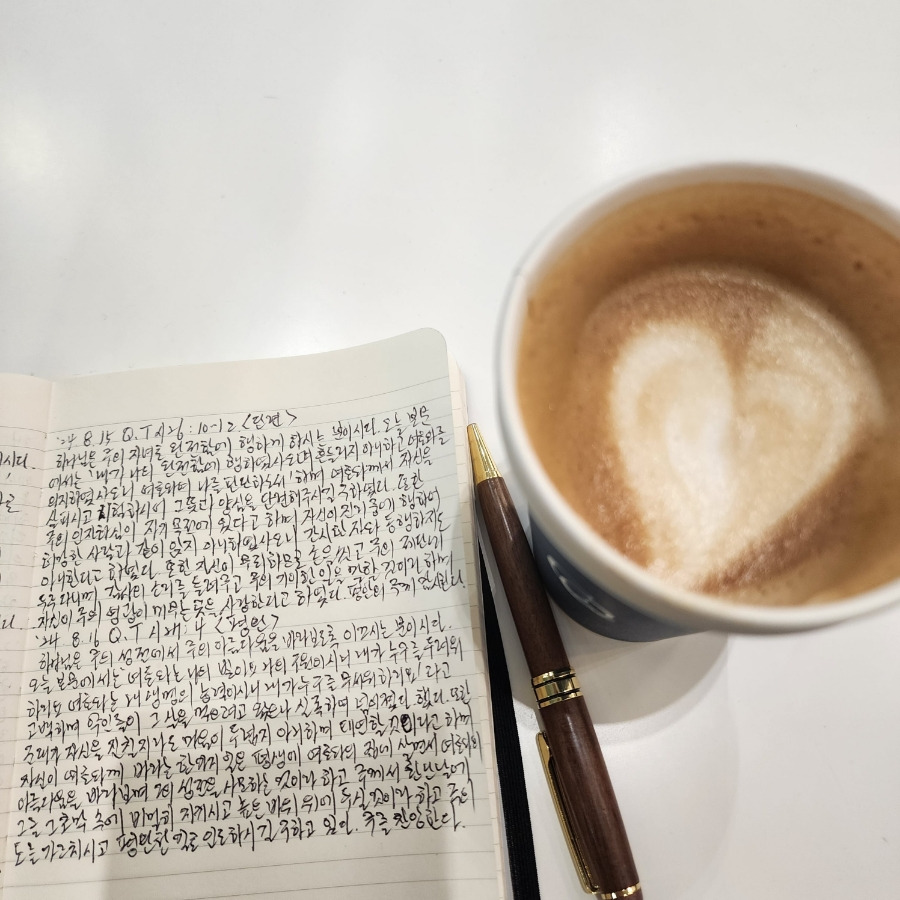 '24. 8. 15 Q.T 시26:10-12 <단련>
하나님은 주의 자녀로 완전함에 행하게 하시는 분이시다. 오늘 본문
에서는 '내가 나의 완전함에 행하였사오며 흔들리지 아니하고 여호와를
의지하였사오니 여호와여 나를 판단하소서' 하며 여호와께서 자신을
살피시고 시험하시어 그 뜻과 양심을 단련해주시길 구하였다. 또한
주의 인자하심이 자기 목전에 있다고 하며 자신이 진리 중에 행하여
허망한 사람과 같이 앉지 아니하였사오니 간사한 자와 동행하지도
아니한다고 하였다. 또한 자신이 무죄하므로 손을 씻고 주의 제단에
두루 다니며 감사의 소리를 들려주고 주의 기이한 일을 말할 것이라 하며
자신이 주의 영광이 머무는 곳을 사랑한다고 하였다.
'24. 8. 16 Q.T 시27:4 <평안>
하나님은 주의 성전에서 주의 아름다움을 바라보도록 이끄시는 분이시다.
오늘 본문에서는 '여호와는 나의 빛이요 나의 구원이시니 내가 누구를 두려워
하리요 여호와는 내 생명의 능력이시니 내가 누구를 무서워하리요' 라고
고백하며 악인들이 그 살을 먹으려고 왔으나 실족하며 넘어졌다 했다. 또한
군대가 자신을 진 칠지라도 마음이 두렵지 아니하며 태연할 것이라고 하며
자신이 여호와께 바라는 한가지 일은 평생에 여호와의 집에 살면서 여호와의
아름다움을 바라보며 그의 성전을 사모하는 것이라 하고 주께서 환난날에
그를 그 초막 속에 비밀히 지키시고 높은 바위 위에 두실 것이라 하고 주의
도를 가르치시고 평탄한 길로 인도하시길 구하고 있다. 주를 찬양한다.